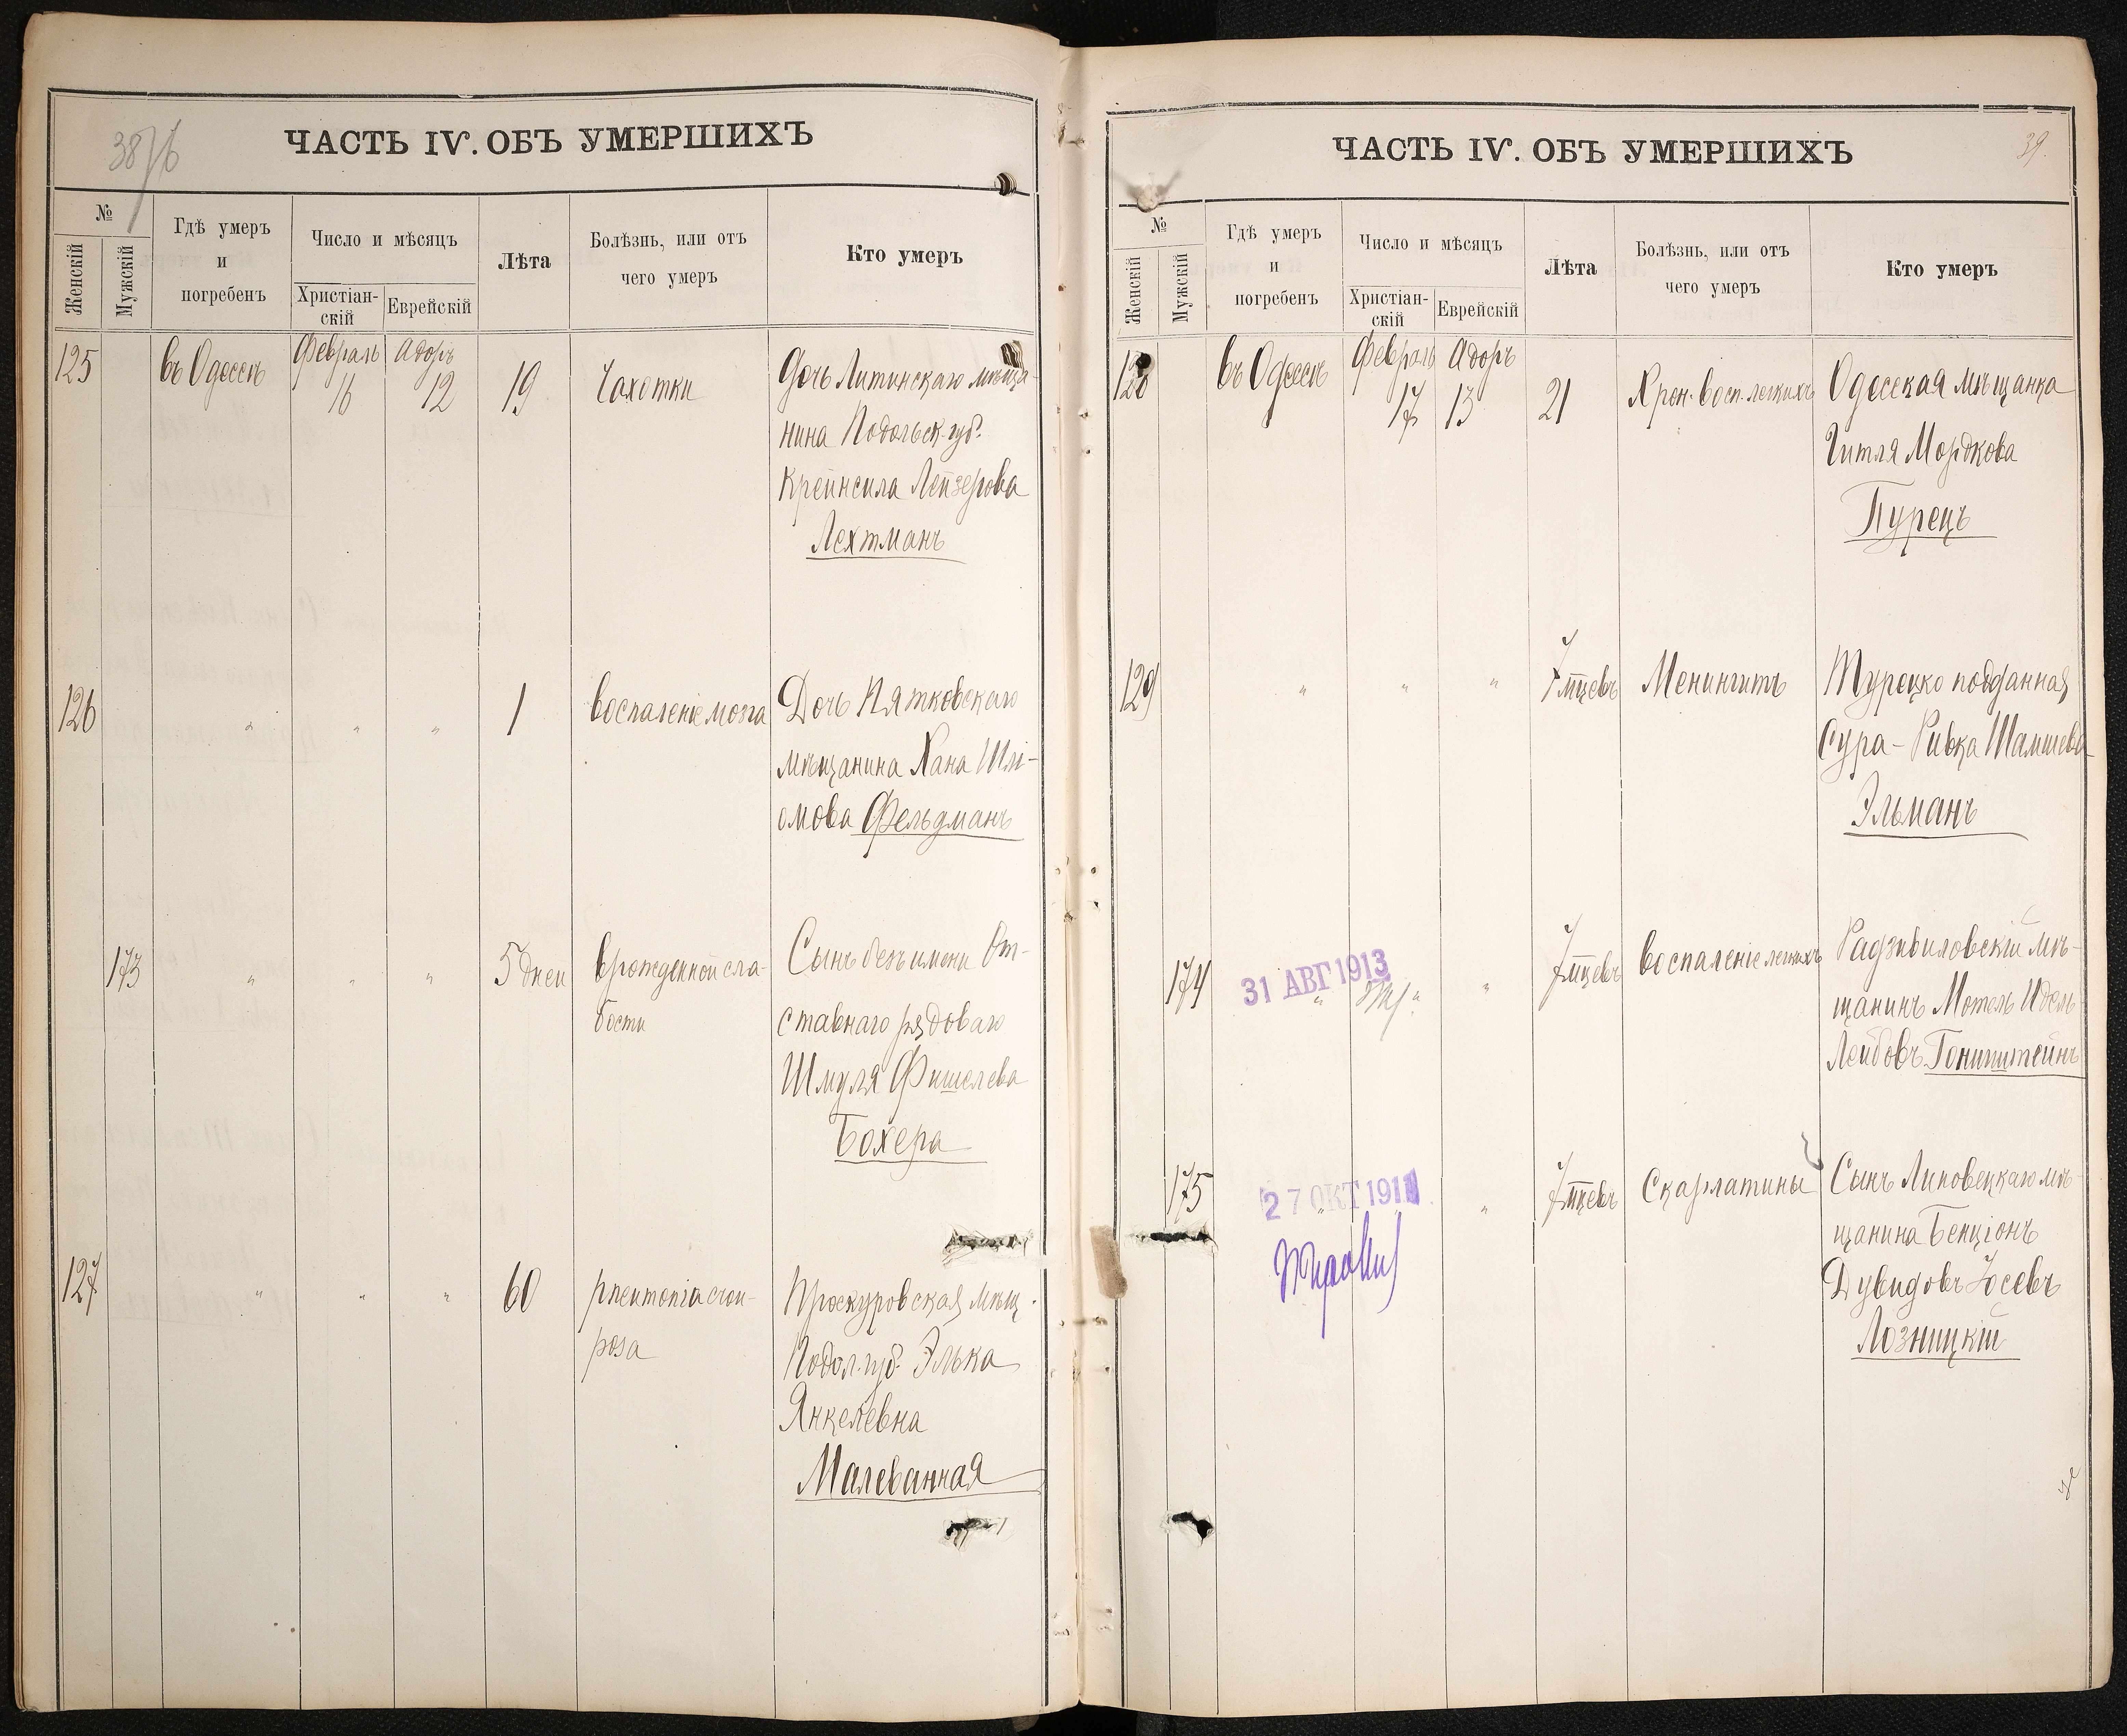 38/76
ЧАСТЬ IV. ОБЪ УМЕРШИХЪ
№
Женскій
Мужскій
Гдѣ умеръ
и
погребенъ
Число и мѣсяцъ
Христіан-
скій
Еврейскій
Лѣта
Болѣзнь, или отъ
чего умеръ
Кто умеръ
125 въ Одессѣ Февраль 16 Адоръ 12 19 Чахотки Дочь Литинскаго мѣща-
нина Подольск. губ.
Крейнсила Лейзерова
Лехтманъ
126 " " " 1 воспаленіе мозга Дочь Пятковскаго
мѣщанина Хана Шлі-
омова Фельдманъ
173 " " " 5 дней врожденной сла- Сынъ безъ имени От-
бости ставнаго рядоваго
Шмуля Фишелева
Бохера
127 " " " 60 pneumonia crou- Проскуровская мѣщ.
posa Подол. губ. Элька
Янкелевна
Малеванная
ЧАСТЬ IV. ОБЪ УМЕРШИХЪ
39.
№
Женскій
Мужскій
Гдѣ умеръ
и
погребенъ
Число и мѣсяцъ
Христіан-
скій
Еврейскій
Лѣта
Болѣзнь, или отъ
чего умеръ
Кто умеръ
128 въ Одессѣ Февраль 17 Адоръ 13 21 Хрон. восп. легкихъ Одесская мѣщанка
Гитля Мордкова
Пурецъ
129 " " " 7 мцевъ Менингитъ Турецко подданная
Сура-Ривка Шамшева
Эльманъ
174 31 АВГ 1913 " " " 7 мцевъ воспаленіе легкихъ Радзивиловскій мѣ-
щанинъ Мотель Идель
Лейбовъ Гонигштейнъ
175 27 ОКТ 1911 " " 7 мцевъ Скарлатины Сынъ Липовецкаго мѣ-
щанина Бенціонъ
Дувидовъ Іосевъ
Лозницкій